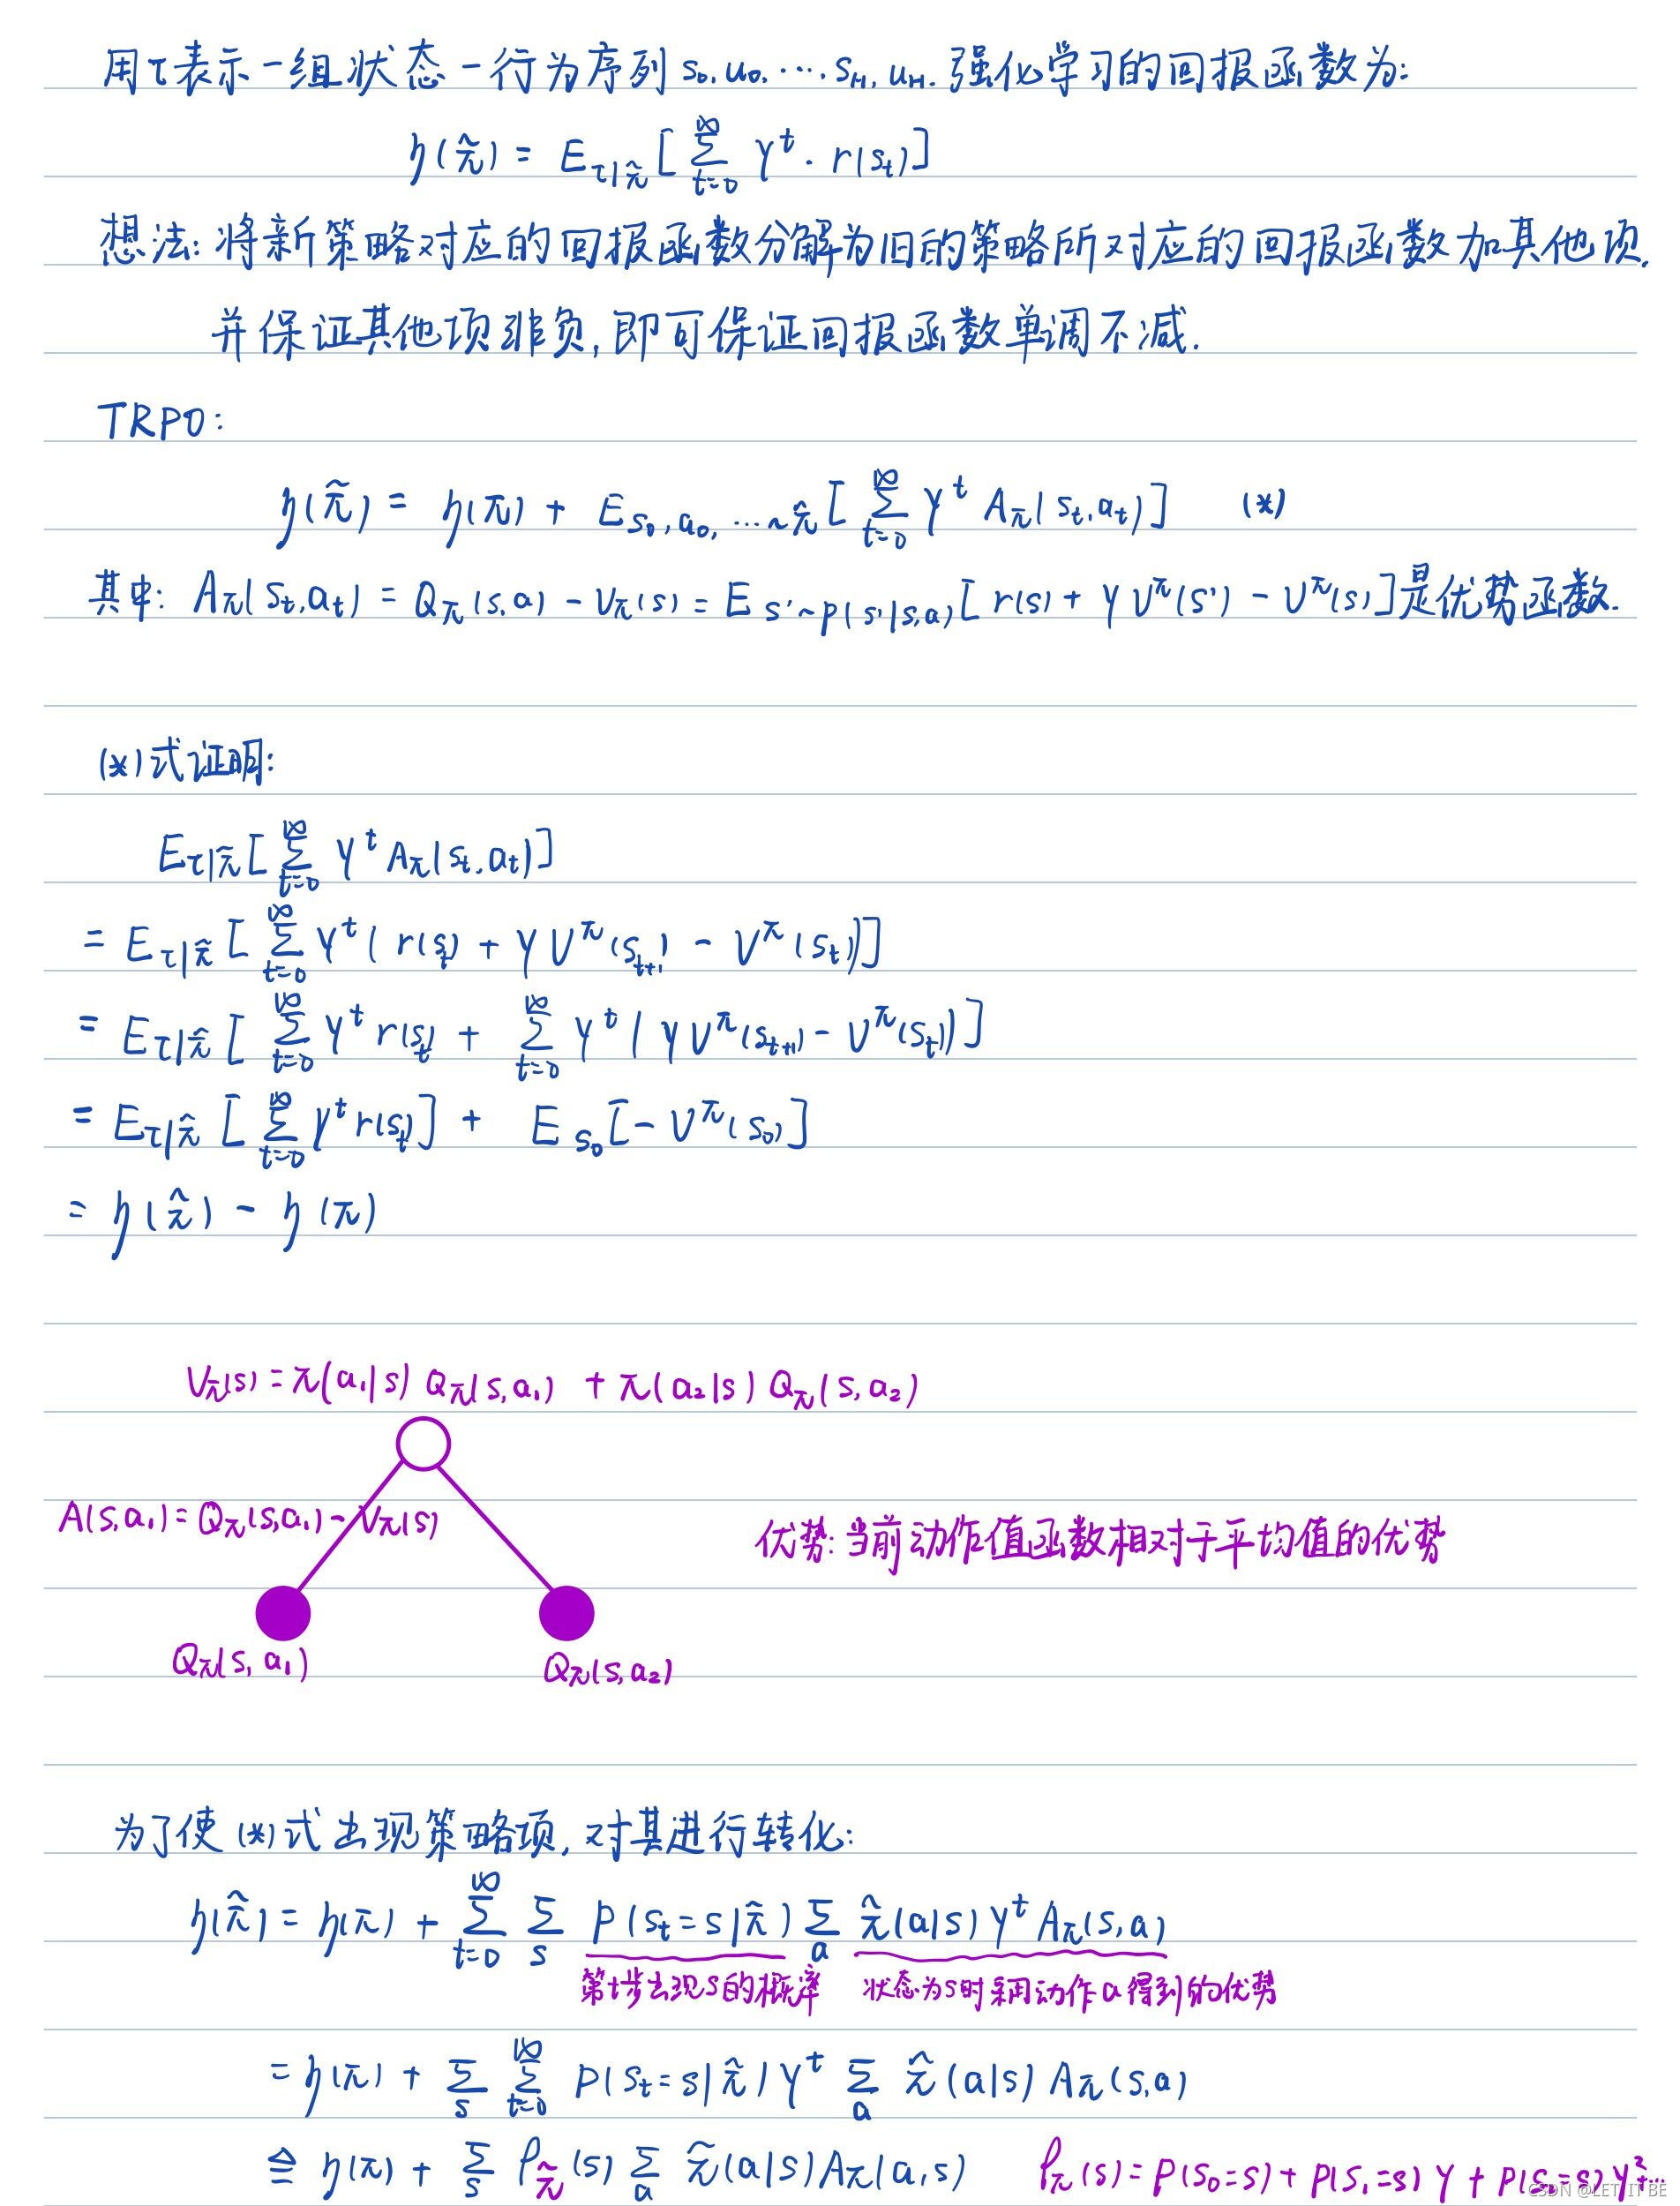 用τ表示一组状态-行为序列 s₀, u₀, ⋯, s_H, u_H. 强化学习的回报函数为:
η(π̂) = E_{τ|π̂} [ ∑_{t=0}^{∞} γ^t · r(s_t) ]
想法: 将新策略对应的回报函数分解为旧的策略所对应的回报函数加其他项.
并保证其他项非负, 即可保证回报函数单调不减.
TRPO:
η(π̃) = η(π) + E_{s₀, a₀, ⋯ ~ π̂} [ ∑_{t=0}^{∞} γ^t A_π(s_t, a_t) ] (*)
其中: A_π(s_t, a_t) = Q_π(s, a) - V_π(s) = E_{s'~p(s'|s,a)} [ r(s) + γ V^π(s') - V^π(s) ] 是优势函数.
(*)式证明:
E_{τ|π̃} [ ∑_{t=0}^{∞} γ^t A_π(s_t, a_t) ]
= E_{τ|π̂} [ ∑_{t=0}^{∞} γ^t ( r(s_t) + γ V^π(s_{t+1}) - V^π(s_t) ) ]
= E_{τ|π̂} [ ∑_{t=0}^{∞} γ^t r(s_t) + ∑_{t=0}^{∞} γ^t ( γ V^π(s_{t+1}) - V^π(s_t) ) ]
= E_{τ|π̂} [ ∑_{t=0}^{∞} γ^t r(s_t) ] + E_{s₀} [ - V^π(s₀) ]
= η(π̂) - η(π)
V_π(s) = π(a₁|s) Q_π(s, a₁) + π(a₂|s) Q_π(s, a₂)
A(s, a₁) = Q_π(s, a₁) - V_π(s)
优势: 当前动作值函数相对于平均值的优势
Q_π(s, a₁) Q_π(s, a₂)
为了使(*)式出现策略项, 对其进行转化:
η(π̂) = η(π) + ∑_{t=0}^{∞} ∑_s P(s_t = s|π̂) ∑_a π̂(a|s) γ^t A_π(s, a)
第t步出现s的概率 状态为s时采用动作a得到的优势
= η(π) + ∑_s ∑_{t=0}^{∞} P(s_t = s|π̂) γ^t ∑_a π̂(a|s) A_π(s, a)
≜ η(π) + ∑_s ρ_π̃(s) ∑_a π̃(a|s) A_π(a, s) ρ_π(s) = P(s₀ = s) + P(s₁ = s) γ + P(s₂ = s) γ² + ⋯
CSDN @LET IT BE